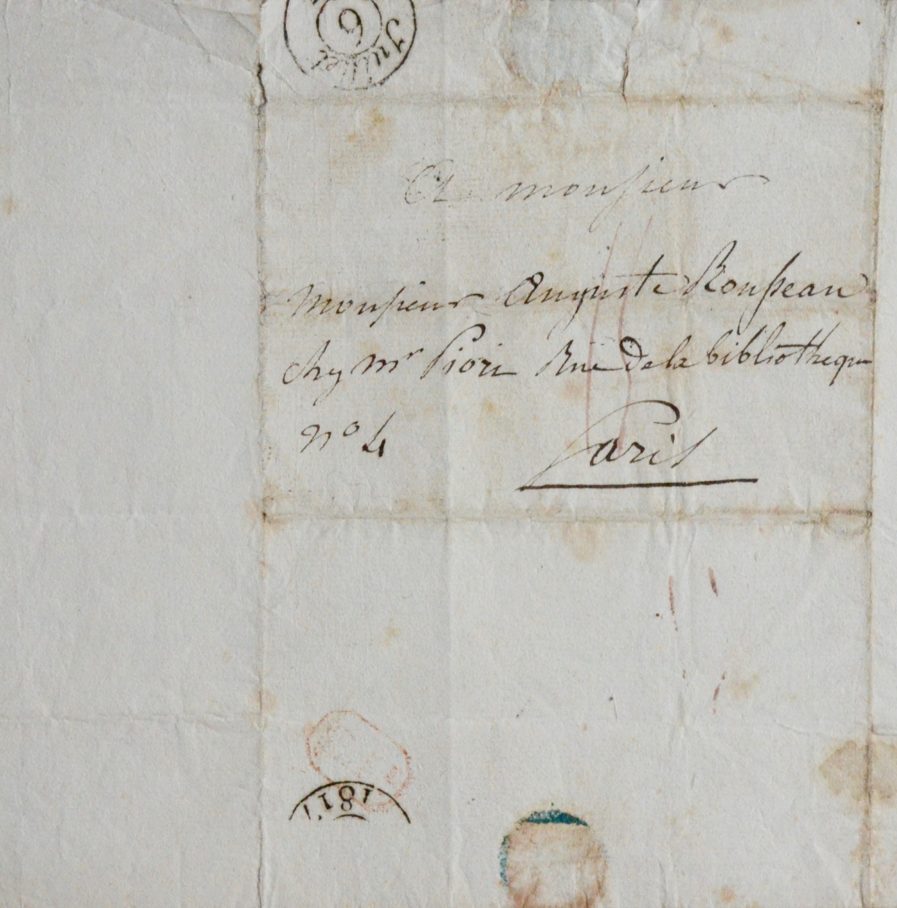 6
Juillet
A monsieur
Monsieur Auguste Rousseau
chez mr Rue de la bibliotheque
no 4
Paris
181